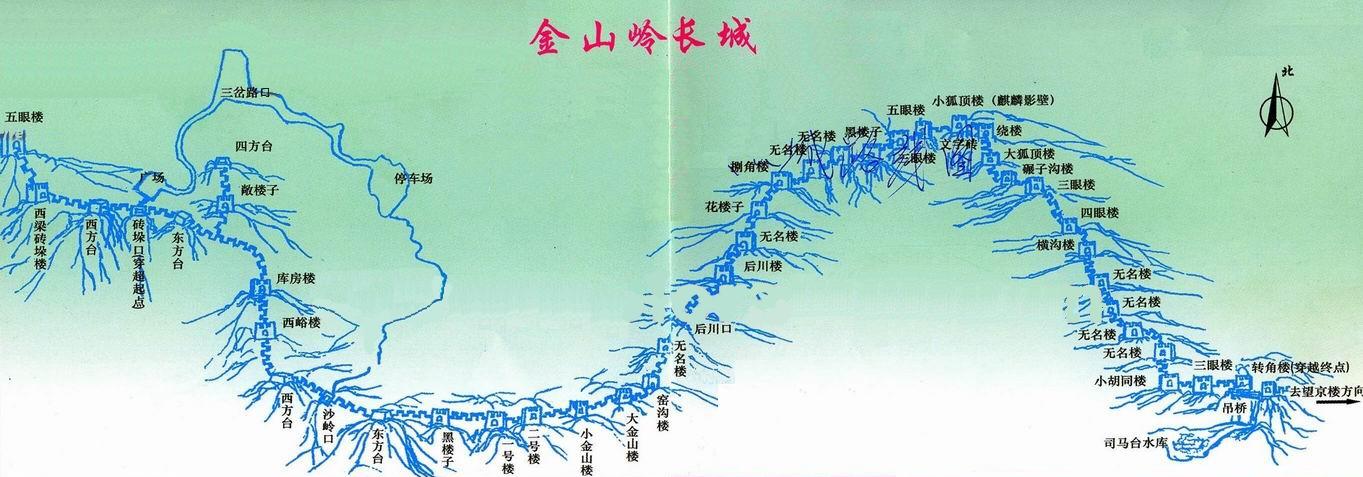 金山岭长城
北
五眼楼
西梁砖垛楼
西方台
广场
砖垛口(穿越起点)
东方台
三岔路口
四方台
敞楼子
停车场
库房楼
西峪楼
西方台
沙岭口
东方台
黑楼子
一号楼
二号楼
小金山楼
大金山楼
窑沟楼
无名楼
后川口
后川楼
无名楼
花楼子
捌角楼
无名楼
无名楼
黑楼子
五眼楼
三眼楼
文字砖
小狐顶楼（麒麟影壁）
绕楼
大狐顶楼
碾子沟楼
三眼楼
四眼楼
横沟楼
无名楼
无名楼
无名楼
无名楼
小胡同楼
三眼楼
转角楼(穿越终点)
去望京楼方向
吊桥
司马台水库